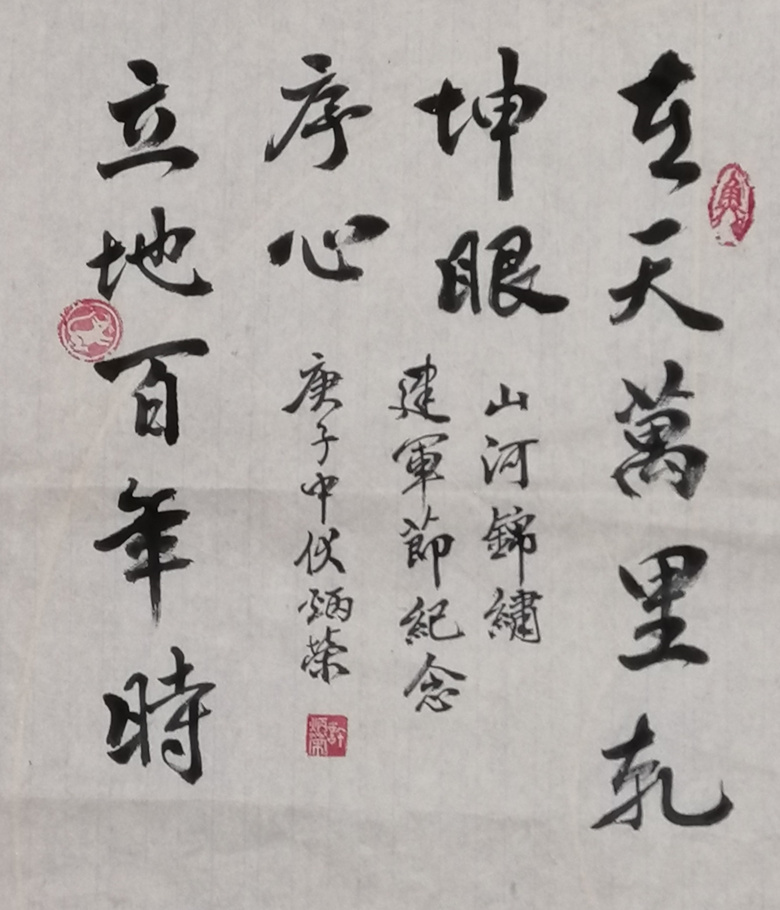 在天萬里乾
坤眼
立地百年時
序心
山河錦繡
建軍節紀念
庚子中伏炳榮
許炳榮